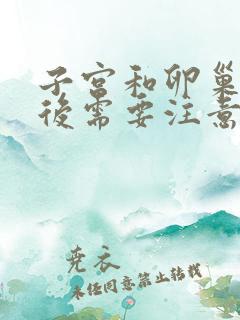 子宫和卵巢
後需要注意
尧衣
未经同意禁止转载